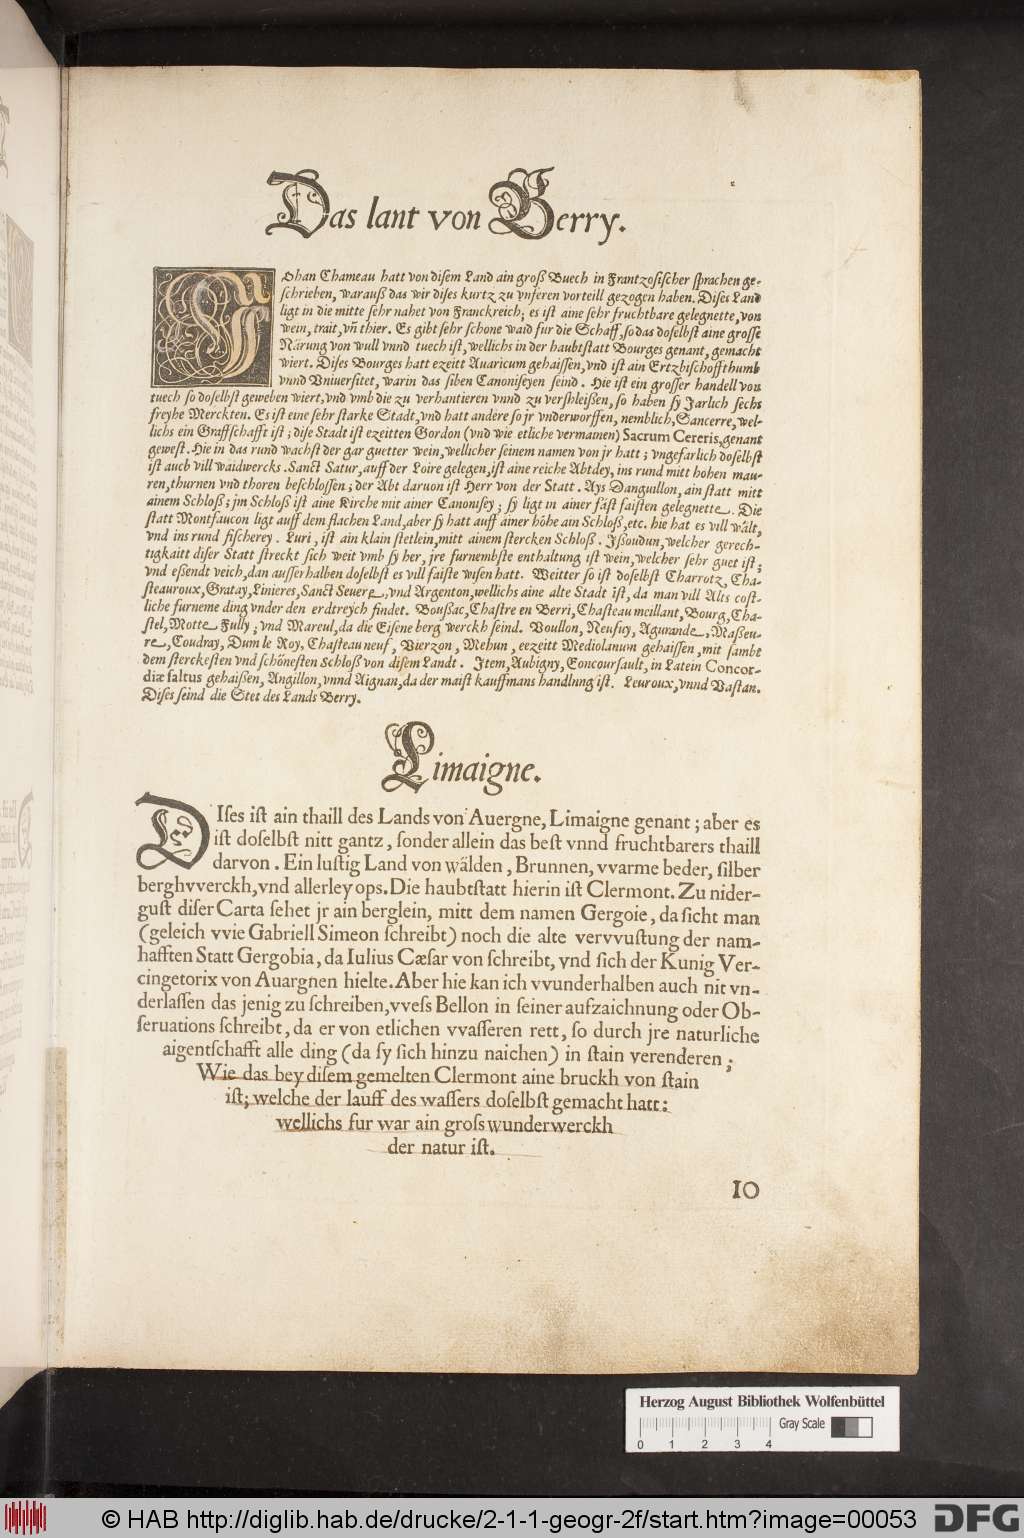 Das lant von Berry.
Johan Chameau hatt von disem Land ain groß Buech in Frantzosischer sprachen ge-
schrieben, warauß das wir dises kurtz zu vnseren vorteill gezogen haben. Dises Land
ligt in die mitte sehr nahet von Franckreich; es ist aine sehr fruchtbare gelegnette, von
wein, trait, vñ thier. Es gibt sehr schone waid fur die Schaff, so das doselbst aine grosse
Närung von wull vnnd tuech ist, wellichs in der haubtstatt Bourges genant, gemacht
wiert. Dises Bourges hatt ezeitt Auaricum gehaissen, vnd ist ain Ertzbischoffthumb
vnnd Vniuersitet, warin das siben Canoniseyen seind. Hie ist ein grosser handell von
tuech so doselbst geweben wiert, vnd vmb die zu verhantieren vnnd zu vershleißen, so haben sy Jarlich sechs
freyhe Merckten. Es ist eine sehr starke Stadt, vnd hatt andere so jr vnderworffen, nemblich, Sancerre, wel-
lichs ein Graffschafft ist; dise Stadt ist ezeitten Gordon (vnd wie etliche vermainen) Sacrum Cereris, genant
gewest. Hie in das rund wachst der gar guetter wein, wellicher seinem namen von jr hatt; vngefarlich doselbst
ist auch vill waidwercks. Sanct Satur, auff der Loire gelegen, ist aine reiche Abtdey, ins rund mitt hohen mau-
ren, thurnen vnd thoren beschlossen; der Abt daruon ist Herr von der Statt. Ays Danguillon, ain statt mitt
ainem Schloß; jm Schloß ist aine Kirche mit ainer Canonisey; sy ligt in ainer fäst faisten gelegnette. Die
statt Montfaucon ligt auff dem flachen Land, aber sy hatt auff ainer höhe ain Schloß, etc. hie hat es vill wält,
vnd ins rund fischerey. Luri, ist ain klain stetlein, mitt ainem stercken Schloß. Jßoudun, welcher gerech-
tigkaitt diser Statt streckt sich weit vmb sy her, jre furnembste enthaltung ist wein, welcher sehr guet ist;
vnd eßendt veich, dan ausserhalben doselbst es vill faiste wisen hatt. Weitter so ist doselbst Charrotz, Cha-
steauroux, Gratay, Linieres, Sanct Seuere, vnd Argenton, wellichs aine alte Stadt ist, da man vill Alts cost-
liche furneme ding vnder den erdtreych findet. Boußac, Chastre en Berri, Chasteau meillant, Bourg, Cha-
stel, Motte Fully; vnd Mareul, da die Eisene berg werckh seind. Voullon, Neufuy, Agurande, Maßeu-
re, Coudray, Dum le Roy, Chasteau neuf, Vierzon, Mehun, eezeitt Mediolanum gehaissen, mit sambt
dem sterckesten vnd schönesten Schloß von disem Landt. Jtem, Aubigny, Concoursault, in Latein Concor-
diæ saltus gehaißen, Angillon, vnnd Aignan, da der maist kauffmans handlnng ist. Leuroux, vnnd Vastan.
Dises seind die Stet des Lands Berry.
Limaigne.
DIses ist ain thaill des Lands von Auergne, Limaigne genant; aber es
ist doselbst nitt gantz, sonder allein das best vnnd fruchtbarers thaill
darvon. Ein lustig Land von wälden, Brunnen, vvarme beder, silber
berghvverckh, vnd allerley ops. Die haubtstatt hierin ist Clermont. Zu nider-
gust diser Carta sehet jr ain berglein, mitt dem namen Gergoie, da sicht man
(geleich vvie Gabriell Simeon schreibt) noch die alte vervvustung der nam-
hafften Statt Gergobia, da Iulius Cæsar von schreibt, vnd sich der Kunig Ver-
cingetorix von Auargnen hielte. Aber hie kan ich vvunderhalben auch nit vn-
derlassen das jenig zu schreiben, vvess Bellon in seiner aufzaichnung oder Ob-
seruations schreibt, da er von etlichen vvasseren rett, so durch jre naturliche
aigentschafft alle ding (da sy sich hinzu naichen) in stain verenderen;
Wie das bey disem gemelten Clermont aine bruckh von stain
ist; welche der lauff des wassers doselbst gemacht hatt:
wellichs fur war ain gross wunderwerckh
der natur ist.
10
Herzog August Bibliothek Wolfenbüttel
Gray Scale
0 1 2 3 4
© HAB http://diglib.hab.de/drucke/2-1-1-geogr-2f/start.htm?image=00053
DFG